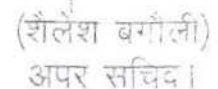 (शैलेश बगौली)
अपर सचिव।